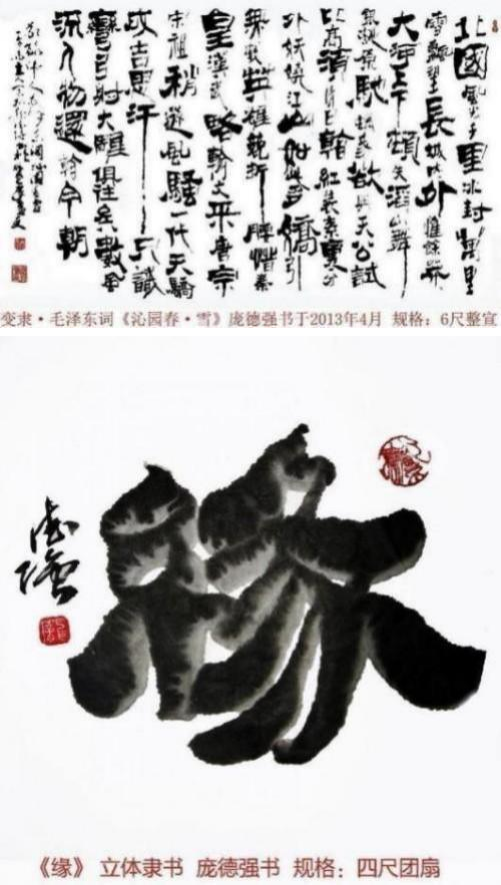 北國風光千里冰封萬里
雪飄望長城內外惟餘莽
大河上下頓失滔滔山舞
銀蛇原馳蠟象欲與天公試
比高須晴日看紅裝素裹分
外妖嬈江山如此多嬌引
無數英雄競折腰惜秦
皇漢武略輸文采唐宗
宋祖稍遜風騷一代天驕
成吉思汗只識
彎弓射大雕俱往矣數風
流人物還看今朝
变隶·毛泽东词《沁园春·雪》庞德强书于2013年4月 规格：6尺整宣
缘
德强
《缘》 立体隶书 庞德强书 规格：四尺团扇